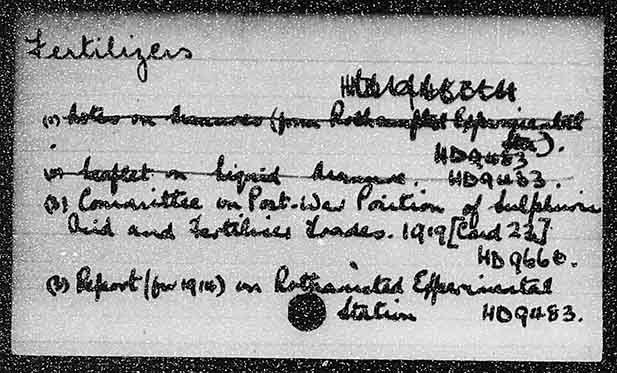 Fertilizers
(1) Notes on Manures (from Rothamsted Experimental
Stn).
HD9483
(2) Leaflet on Liquid Manure. HD9483.
(3) Committee on Post-War Position of Sulphuric
Acid and Fertiliser Trades. 1919 [Cmd 23]
HD9660.
Report (for 1914) on Rothamsted Experimental
Station HD9483.